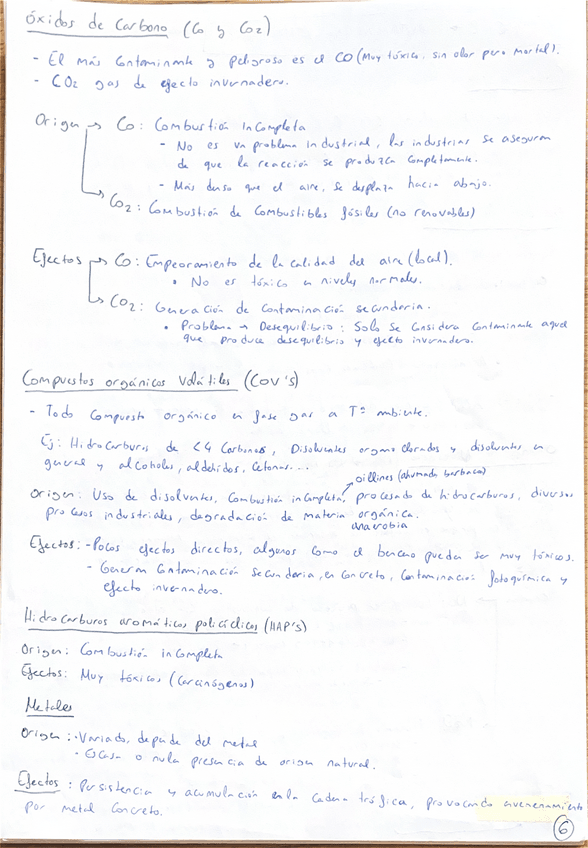 Óxidos de Carbono (CO y CO2)
- El más Contaminante y peligroso es el CO (Muy tóxico, sin olor pero mortal).
- CO2 gas de efecto invernadero.
Origen → CO: Combustión Incompleta
- No es un problema industrial, las industrias se aseguran
de que la reacción se produzca completamente.
- Más denso que el aire, se desplaza hacia abajo.
→ CO2: Combustión de Combustibles fósiles (no renovables)
Efectos → CO: Empeoramiento de la calidad del aire (local).
• No es tóxico en niveles normales.
→ CO2: Generación de Contaminación secundaria.
• Problema → Desequilibrio: Solo se Considera Contaminante aquel
que produce desequilibrio y efecto invernadero.
Compuestos orgánicos Volátiles (COV's)
- Todo Compuesto orgánico en fase gas a Tª ambiente.
Ej: Hidrocarburos de <4 Carbonos, Disolventes organoclorados y disolventes en
general y alcoholes, aldehidos, Cetonas...
(ahumado barbacoa)
Origen: Uso de disolventes, Combustión incompleta, procesado de hidrocarburos, diversos
procesos industriales, degradación de materia orgánica.
anaerobia
Efectos: - Pocos efectos directos, algunos como el benceno pueden ser muy tóxicos.
- Generan Contaminación secundaria, en concreto, Contaminación fotoquímica y
efecto invernadero.
Hidrocarburos aromáticos policíclicos (HAP's)
Origen: Combustión incompleta
Efectos: Muy tóxicos (Carcinógenos)
Metales
Origen: · Variado, depende del metal
· Escasa o nula presencia de origen natural.
Efectos: Persistencia y acumulación en la Cadena trófica, provocando envenenamiento
por metal Concreto.
6